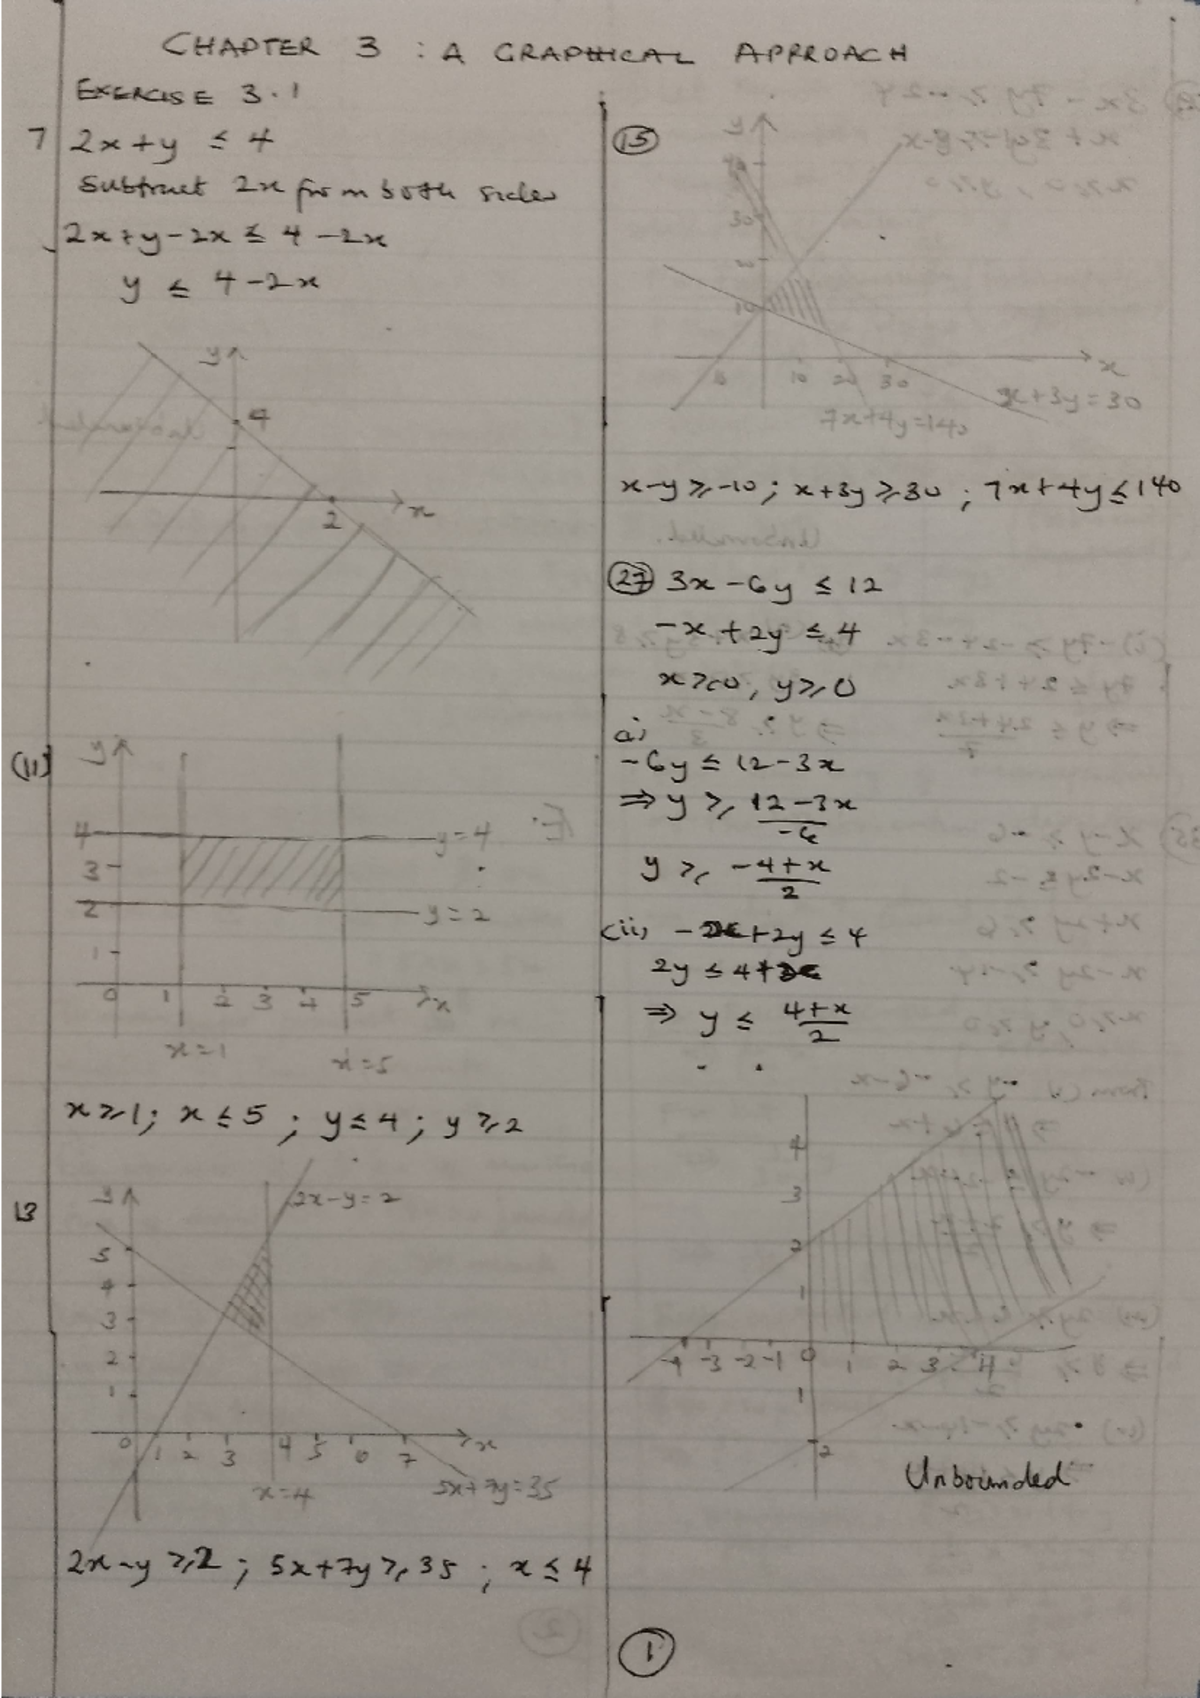 CHAPTER 3 : A GRAPHICAL APPROACH
EXERCISE 3.1
7 2x+y ≤ 4
Subtract 2x from both sides
2x+y-2x ≤ 4-2x
y ≤ 4-2x
y
4
2
x
(11)
y
4
y=4
3
2
y=2
1
0 1 2 3 4 5 x
x=1
x=5
x≥1; x≤5 ; y≤4 ; y≥2
13
y
2x-y=2
5
4
3
2
1
0 1 2 3 4 5 6 7 x
x=4
5x+7y=35
2x-y≥2 ; 5x+7y≥35 ; x≤4
(15)
y
30
10
10 10 20 30
x
x+3y=30
7x+4y=140
x-y≥-10 ; x+3y≥30 ; 7x+4y≤140
(27) 3x-6y ≤ 12
-x+2y ≤ 4
x≥0, y≥0
(i)
-6y ≤ 12-3x
⇒ y ≥ 12-3x/-6
y ≥ -4+x/2
(ii) -x+2y ≤ 4
2y ≤ 4+x
⇒ y ≤ 4+x/2
4
3
2
1
-4 -3 -2 -1 0 1 2 3 4
1
2
Unbounded
1